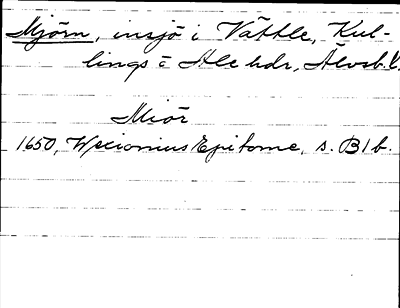 Mjörn, insjö i Vättle, Kul-
lings o Ale hdr, Älvsb. l.
Miör
1650, Wexionius Epitome, s. B1b.